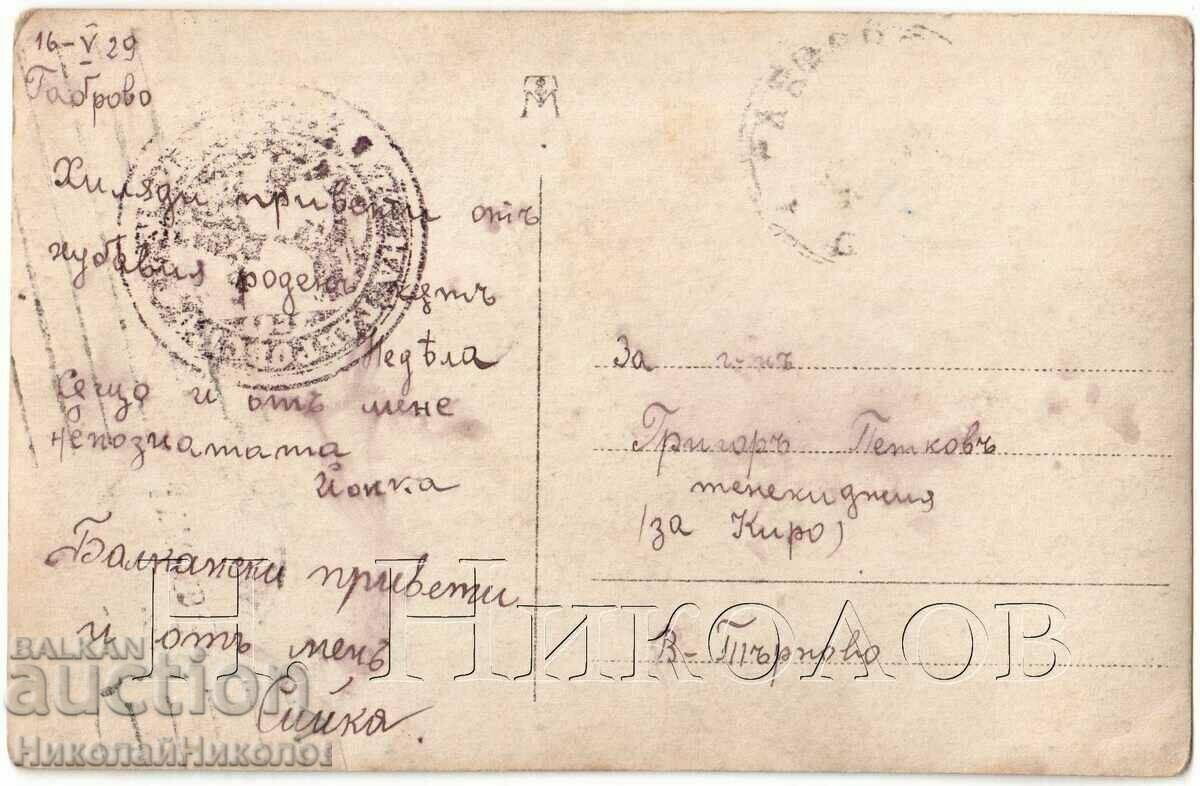 16-V 29
Габрово
Хиляди привети отъ
хубавия роденъ кѫтъ
Недѣла
Сѫщо и отъ мене
непознатата
Йонка
Балкански привети
и отъ менъ
За г-нъ
Григоръ Петковъ
тенекиджия
/за Киро/
В-Търново
Н. Николов
BALKAN
auction
НиколайНиколов